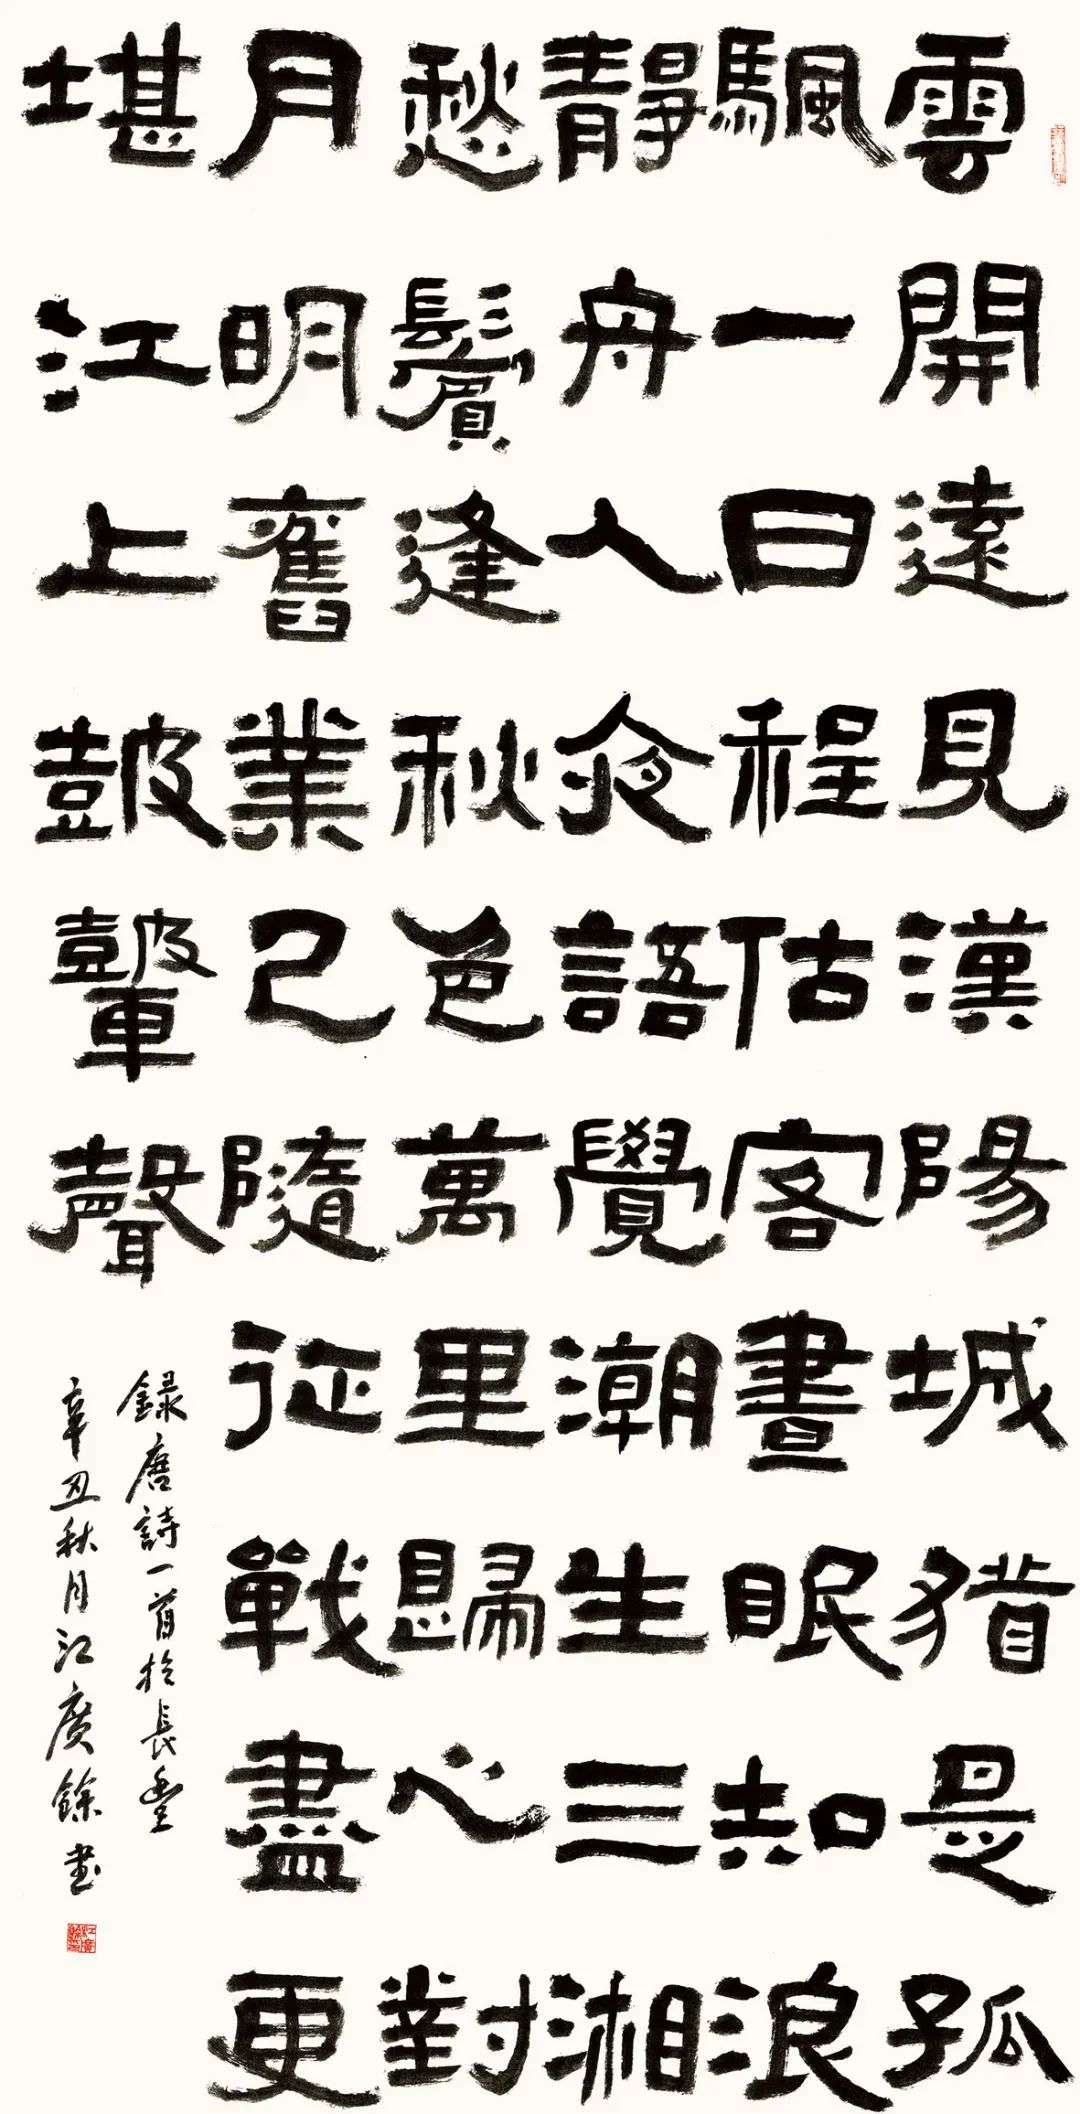 雲開遠見漢陽城猶是孤
颿一日程估客晝眠知浪
靜舟人夜語覺潮生三湘
愁鬢逢秋色萬里歸心對
月明舊業已隨征戰盡更
堪江上皷鼙聲
録唐詩一首於長豐
辛丑秋月江廣餘書